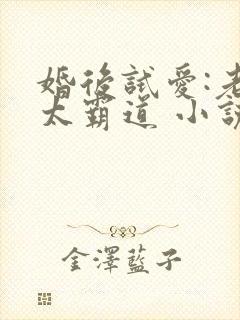 婚後試愛:老
太霸道 小說
金澤藍子